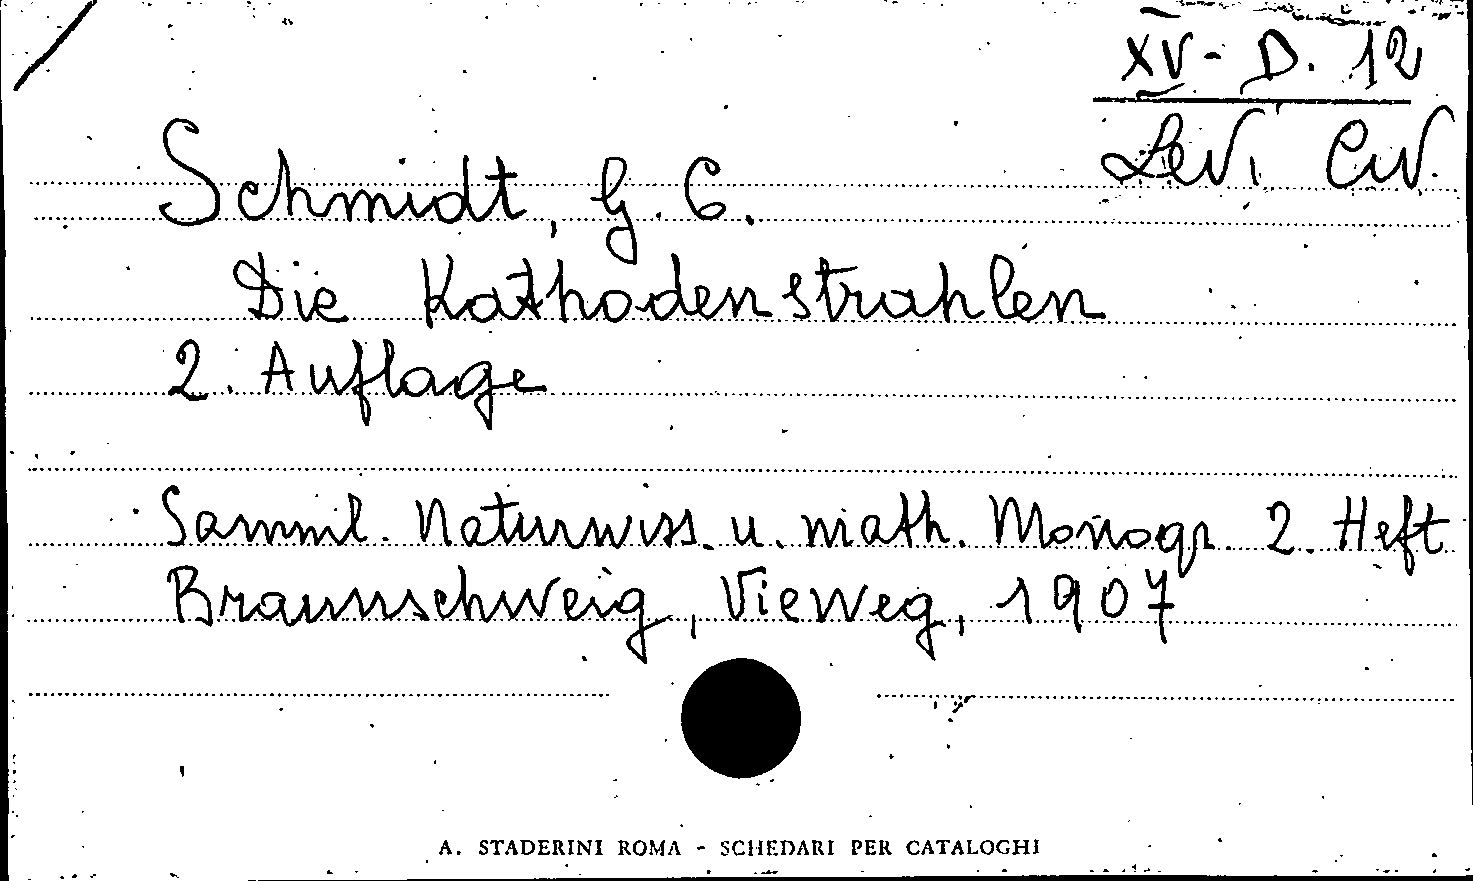 XV - D. 12
Lev. Civ.
Schmidt, G. C.
Die Kathodenstrahlen
2. Auflage
Samml. Naturwiss. u. math. Monogr. 2. Heft
Braunschweig, Vieweg, 1907
A. STADERINI ROMA - SCHEDARI PER CATALOGHI